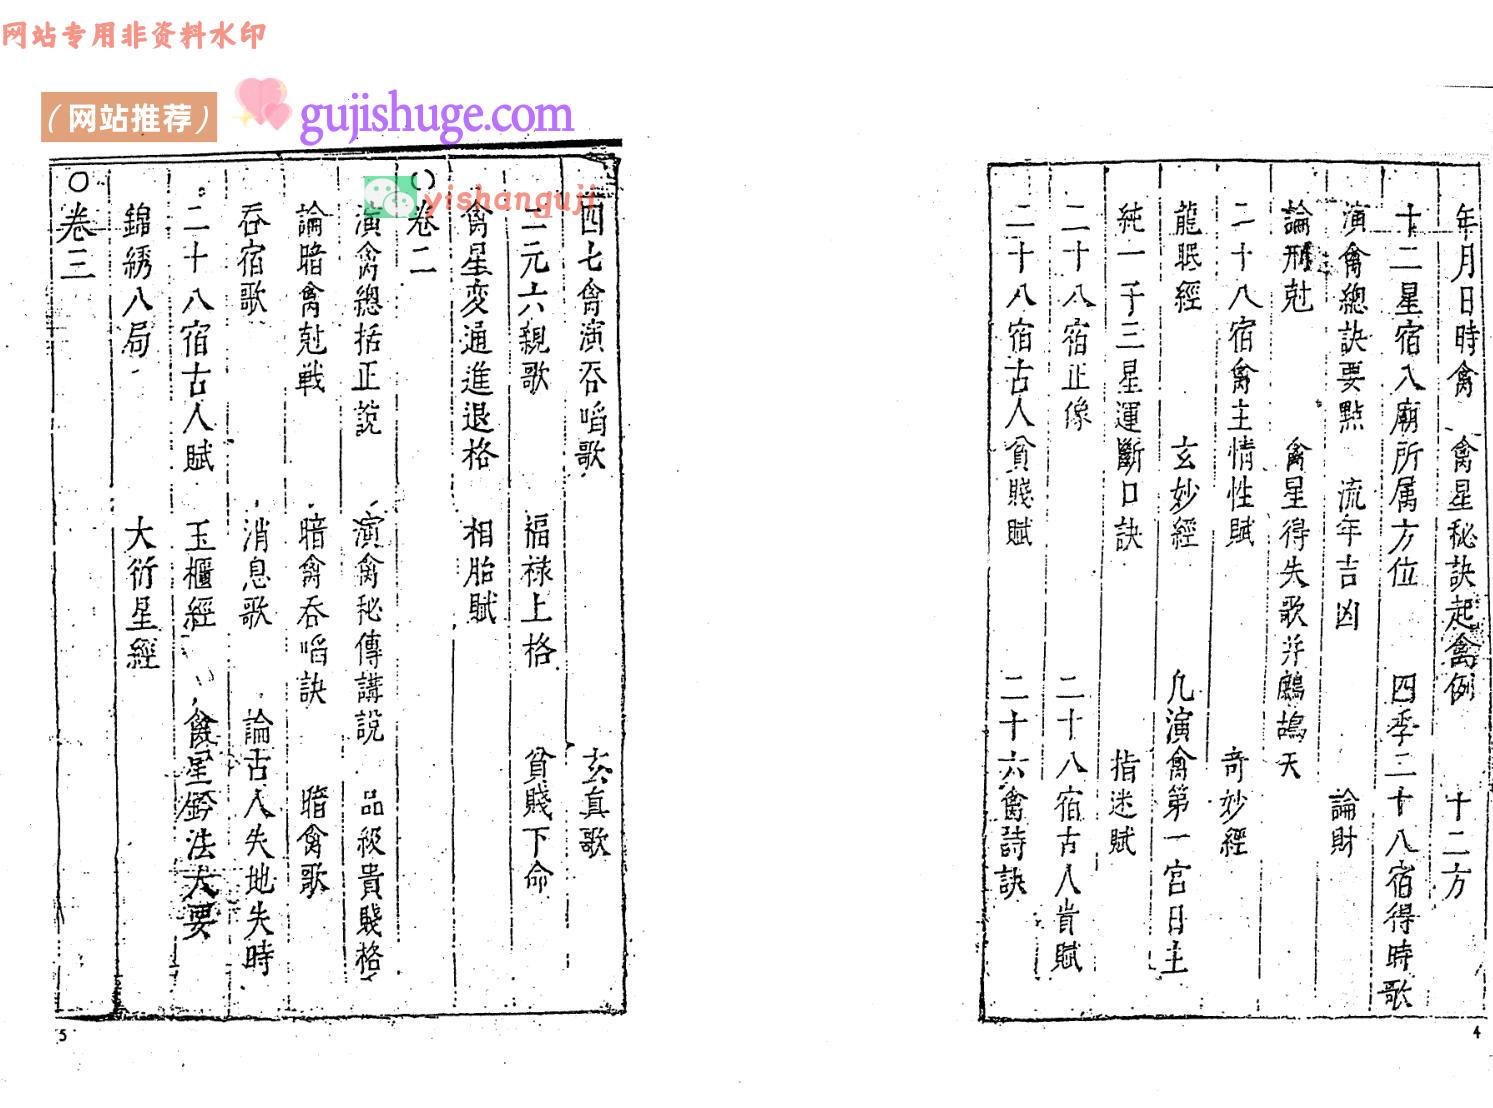 网站专用非资料水印
（网站推荐）
gujishuge.com
yishanguji
年月日時禽　禽星秘訣起禽例　十二方
十二星宿入廟所属方位　四季二十八宿得時歌
演禽總訣要點　流年吉凶　論財
論刑尅　禽星得失歌并鷓鴣天
二十八宿禽主情性賦　奇妙經
龍眠經　玄妙經　凡演禽第一宮日主
純一子三星運斷口訣　指迷賦
二十八宿正像　二十八宿古人貴賦
二十八宿古人貧賤賦　二十六禽詩訣
4
四七禽演吞啗歌　玄真歌
二元六親歌　福禄上格　貧賤下命
禽星変通進退格　相胎賦
○卷二
演禽總括正說　演禽秘傳講說　品級貴賤格
論暗禽尅戦　暗禽吞啗訣　暗禽歌
吞宿歌　消息歌　論古人失地失時
二十八宿古人賦　玉櫃經　禽星鈐法大要
錦綉八局　大衍星經
○卷三
5